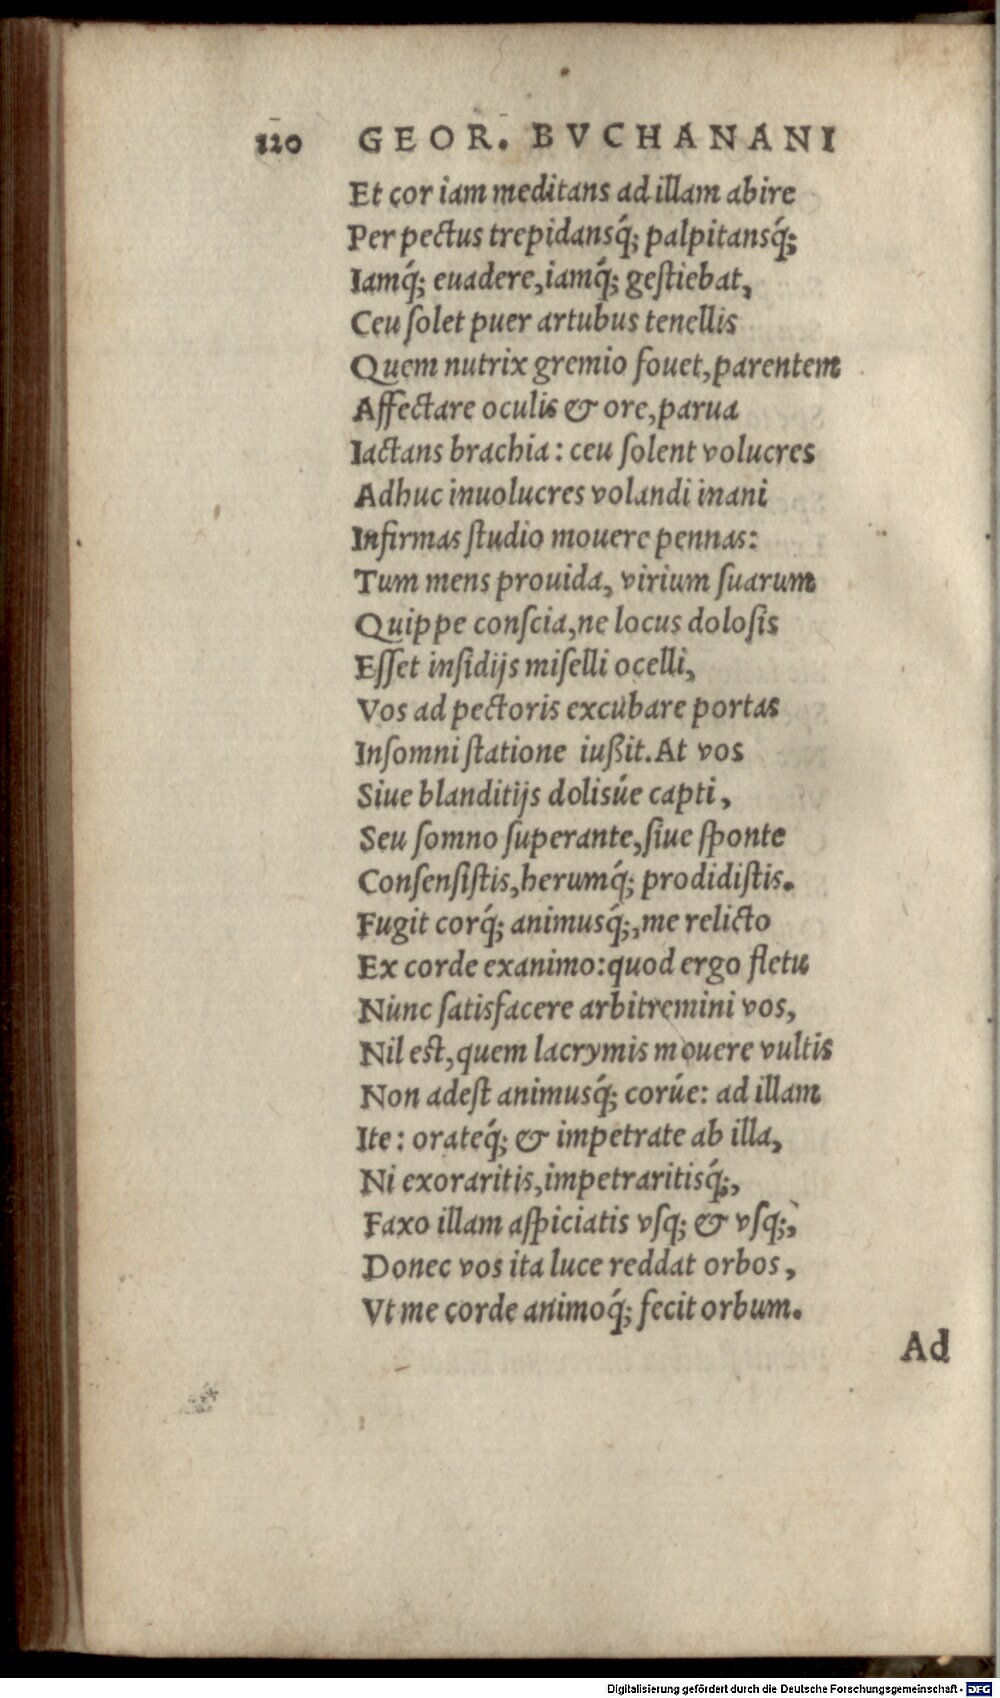 120 GEOR. BVCHANANI
Et cor iam meditans ad illam abire
Per pectus trepidansq́; palpitansq́;
Iamq́; euadere, iamq́; geſtiebat,
Ceu ſolet puer artubus tenellis
Quem nutrix gremio fouet, parentem
Affectare oculis & ore, parua
Iactans brachia: ceu ſolent volucres
Adhuc inuolucres volandi inani
Infirmas ſtudio mouere pennas:
Tum mens prouida, virium ſuarum
Quippe conſcia, ne locus doloſis
Eſſet inſidijs miſelli ocelli,
Vos ad pectoris excubare portas
Inſomni ſtatione iußit. At vos
Siue blanditijs dolisúe capti,
Seu ſomno ſuperante, ſiue ſponte
Conſenſiſtis, herumq́; prodidiſtis.
Fugit corq́; animusq́;, me relicto
Ex corde exanimo: quod ergo fletu
Nunc ſatisfacere arbitremini vos,
Nil eſt, quem lacrymis mouere vultis
Non adeſt animusq́; corúe: ad illam
Ite: orateq́; & impetrate ab illa,
Ni exoraritis, impetraritisq́;,
Faxo illam aſpiciatis vſq; & vſq;,
Donec vos ita luce reddat orbos,
Vt me corde animoq́; fecit orbum.
Ad
Digitalisierung gefördert durch die Deutsche Forschungsgemeinschaft - DFG